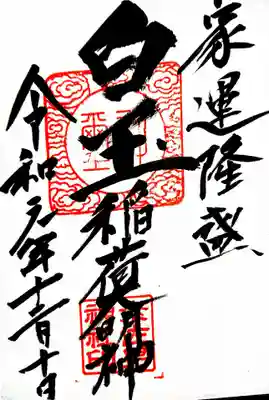 家運隆盛
白玉稲荷大明神
令和元年十二月十日